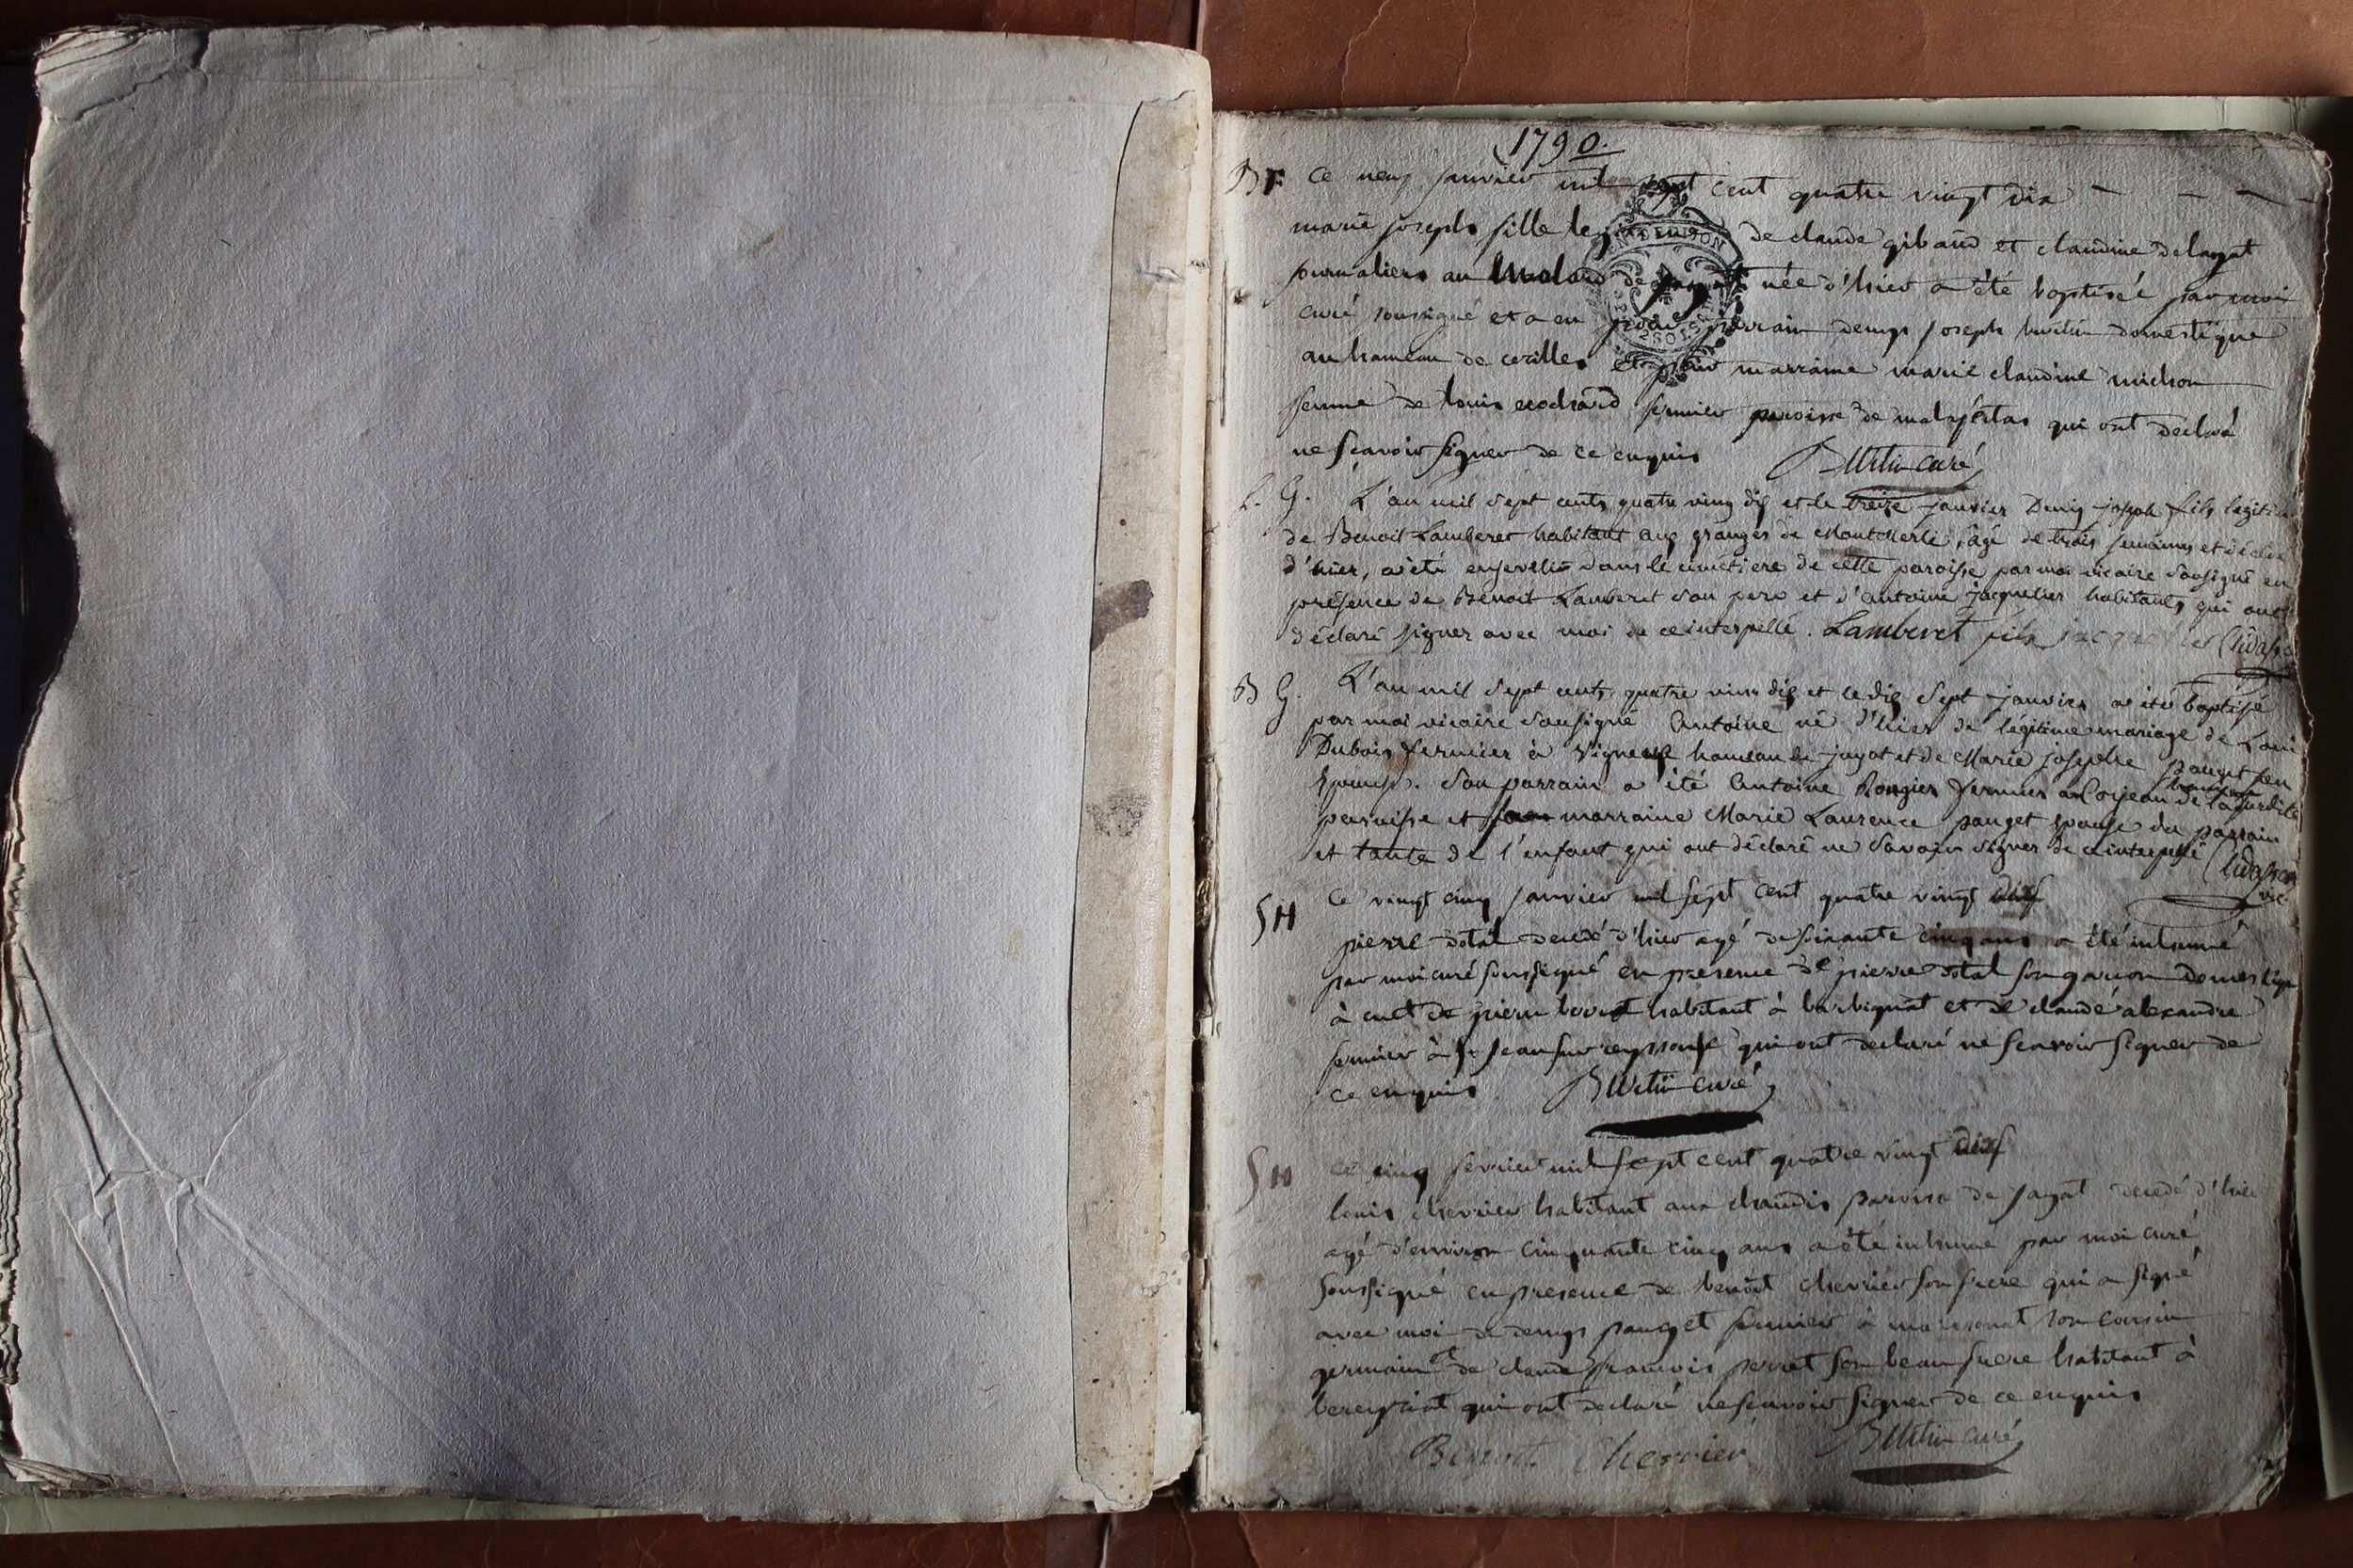 1790.
BF Ce neuf janvier mil sept cent quatre vingt dix
marie joseph fille de claude gibaud et claudine delayat
journaliers au née d'hier a été baptisée par moi
curé soussigné et a eu pour parrain denys joseph burtin domestique
au hameau de cézilles et pour marraine marie claudine michon
femme de louis cochard fermier paroisse de malafretas qui ont declaré
ne scavoir signer de ce enquis Burtin curé
S. G. L'an mil sept cents quatre ving dix et le treize janvier Denis joseph fils légitime
de Benoit Lamberet habitant aux granges de Montmerle, âgé de trois semaines et décédé
d'hier, a été enseveli dans le cimetiere de cette paroisse par moi vicaire sousigné en
présence de Benoit Lamberet son pere et d'antoine jacquelier habitants qui ont
déclaré signer avec moi de ce interpellé. Lamberet fils
B G. L'an mil sept cents quatre ving dix et le dix sept janvier a été baptisé
par moi vicaire sousigné Antoine né d'hier de légitime mariage de Loui
Dubois fermier à hameau de jayat et de Marie josephe pauget sen
Epouse. Son parrain a été Antoine Rongier fermier
paroisse et marraine Marie Laurence pauget épouse du parrain
et tante de l'enfant qui ont déclaré ne savoir signer de ce interpellé
vic.
SH Ce vingt cinq janvier mil sept cent quatre vingt dix
pierre dotal decedé d'hier agé de soixante cinq ans a été inhumé
par moi curé soussigné en presence de pierre dotal son garcon domestique
à cuet de pierre habitant à barbignat et de claude alexandre
fermier à St jean sur reyssouse qui ont declaré ne scavoir signer de
ce enquis Burtin curé
SH Ce cinq fevrier mil sept cent quatre vingt dix
louis chevrier habitant aux chaudis paroisse de jayat decedé d'hier
agé d'environ cinquante cinq ans a été inhumé par moi curé
soussigné en presence de benoit chevrier son frere qui a signé
avec moi de denys pauget fermier à marsonat son cousin
germain et de claude francois perret son beau frere habitant à
bereyziat qui ont declaré ne scavoir signer de ce enquis
Benoit Chevrier Burtin curé